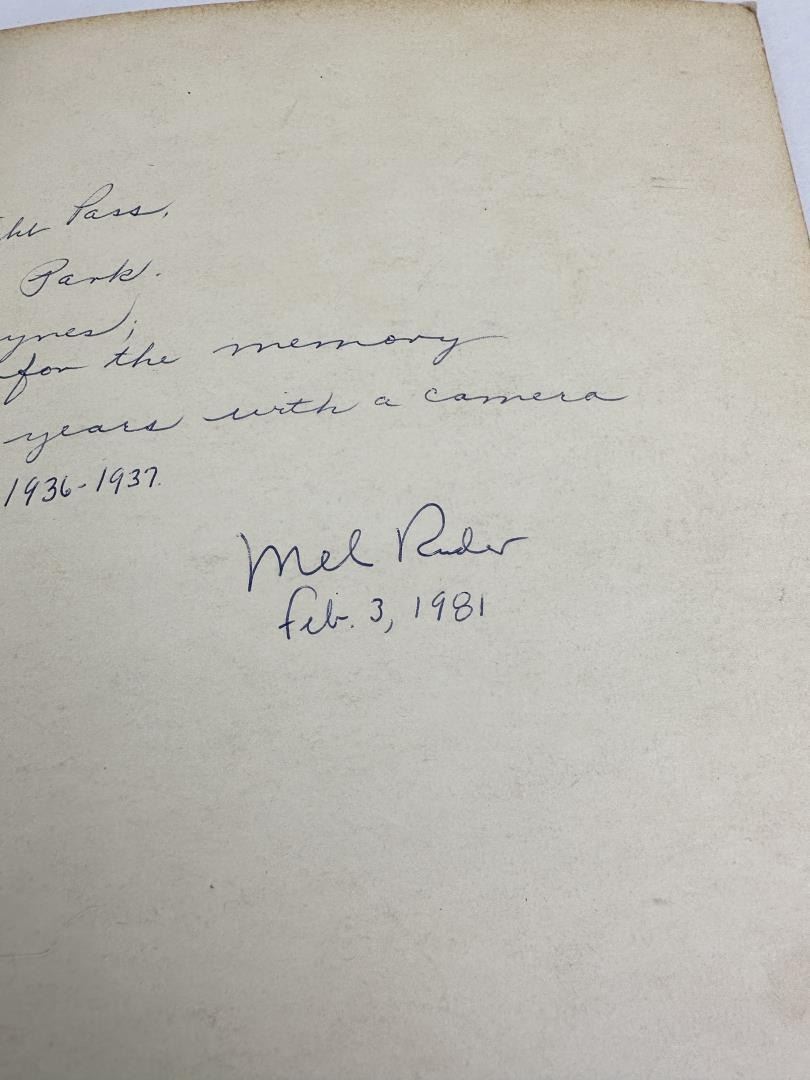 the Pass.
Park.
ynes;
for the memory
years with a camera
1936-1937.
Mel Ruder
Feb. 3, 1981